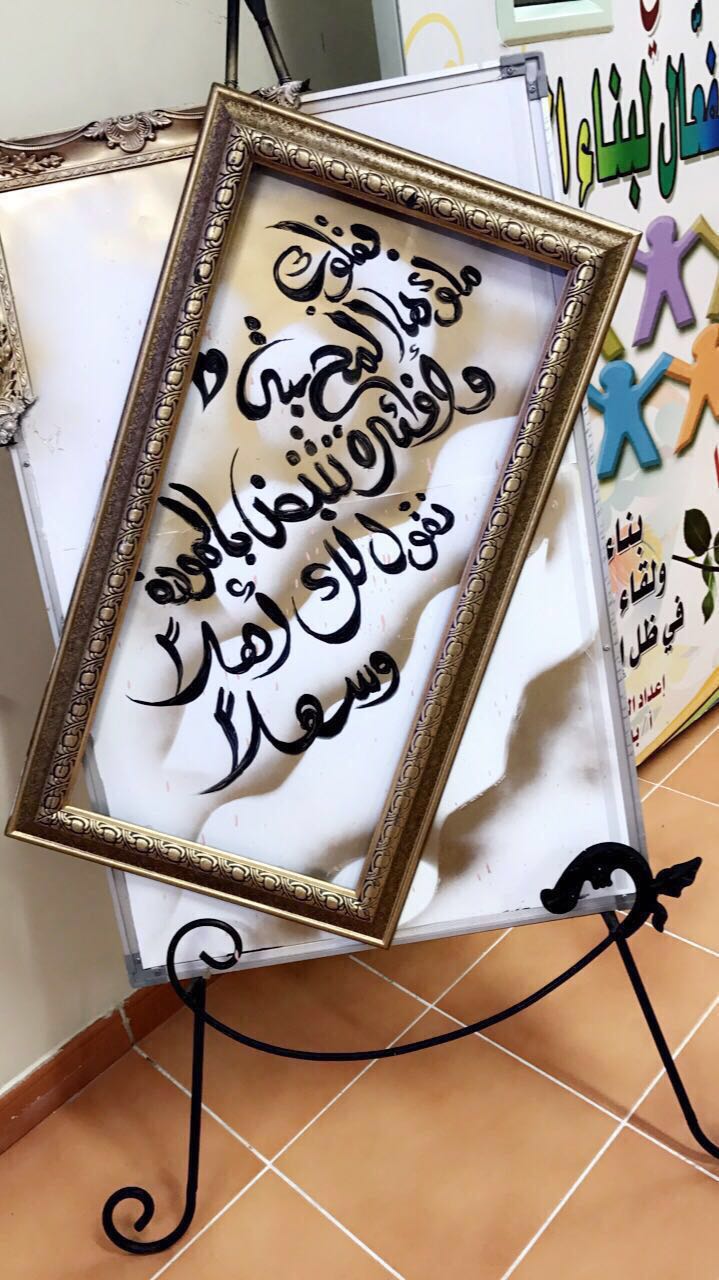 بقلوب
ملؤها المحبة و
وأفئدة تنبض بالمودة
نقول لك أهلاً
وسهلاً
فعال لبناء
بناء
ولقاء
في ظل
إعداد
أ /